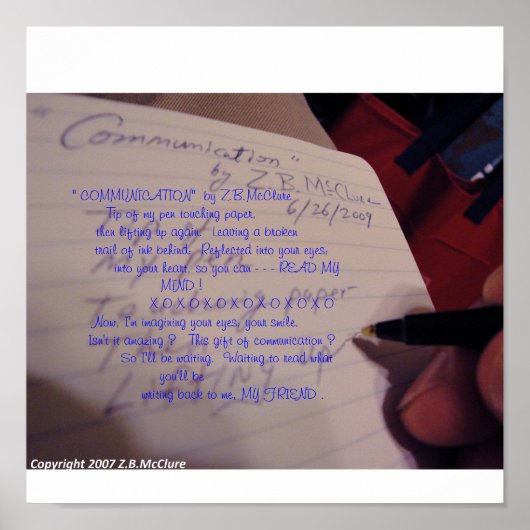 "Communication"
by Z.B. McClure
6/26/2009
" COMMUNICATION" by Z.B.McClure
Tip of my pen touching paper,
then lifting up again. Leaving a broken
trail of ink behind. Reflected into your eyes;
into your heart, so you can - - - READ MY
MIND !
X O X O X O X O X O X O X O
Now, I'm imagining your eyes; your smile.
Isn't it amazing ? This gift of communication ?
So I'll be waiting. Waiting to read what
you'll be
writing back to me, MY FRIEND .
paper-
Copyright 2007 Z.B.McClure